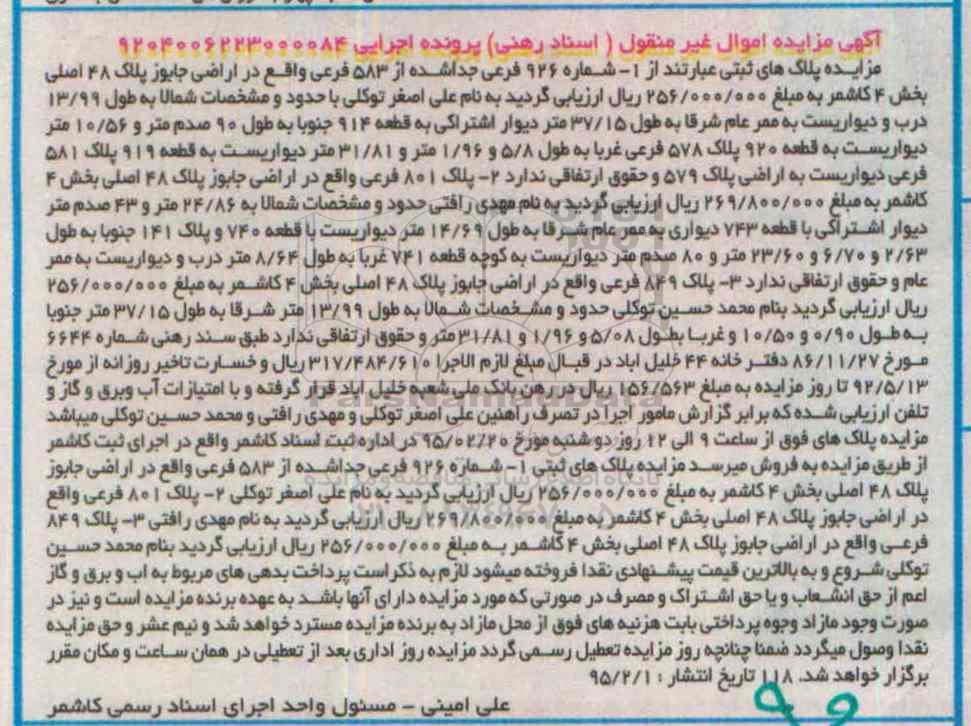 آگهی مزایده اموال غیر منقول ( اسناد رهنی) پرونده اجرایی ۹۲۰۴۰۰۶۲۲۳۰۰۰۰۸۴
مزایده پلاک های ثبتی عبارتند از ۱- شماره ۹۲۶ فرعی جداشده از ۵۸۳ فرعی واقع در اراضی جابوز پلاک ۴۸ اصلی
بخش ۴ کاشمر به مبلغ ۲۵۶/۰۰۰/۰۰۰ ریال ارزیابی گردید به نام علی اصغر توکلی با حدود و مشخصات شمالا به طول ۱۳/۹۹
درب و دیواریست به ممر عام شرقا به طول ۳۷/۱۵ متر دیوار اشتراکی به قطعه ۹۱۴ جنوبا به طول ۹۰ صدم متر و ۱۰/۵۶ متر
دیواریست به قطعه ۹۲۰ پلاک ۵۷۸ فرعی غربا به طول ۵/۸ و ۱/۹۶ متر و ۳۱/۸۱ متر دیواریست به قطعه ۹۱۹ پلاک ۵۸۱
فرعی دیواریست به اراضی پلاک ۵۷۹ و حقوق ارتفاقی ندارد ۲- پلاک ۸۰۱ فرعی واقع در اراضی جابوز پلاک ۴۸ اصلی بخش ۴
کاشمر به مبلغ ۲۶۹/۸۰۰/۰۰۰ ریال ارزیابی گردید به نام مهدی رافتی حدود و مشخصات شمالا به ۲۴/۸۶ متر و ۴۳ صدم متر
دیوار اشتراکی با قطعه ۷۴۳ دیواری به ممر عام شرقا به طول ۱۴/۶۹ متر دیواریست با قطعه ۷۴۰ و پلاک ۱۴۱ جنوبا به طول
۲/۶۳ و ۶/۷۰ و ۲۳/۶۰ متر و ۸۰ صدم متر دیواریست به کوچه قطعه ۷۴۱ غربا به طول ۸/۶۴ متر درب و دیواریست به ممر
عام و حقوق ارتفاقی ندارد ۳- پلاک ۸۴۹ فرعی واقع در اراضی جابوز پلاک ۴۸ اصلی بخش ۴ کاشمر به مبلغ ۲۵۶/۰۰۰/۰۰۰
ریال ارزیابی گردید بنام محمد حسین توکلی حدود و مشخصات شمالا به طول ۱۳/۹۹ متر شرقا به طول ۳۷/۱۵ متر جنوبا
به طول ۰/۹۰ و ۱۰/۵۰ و غربا بطول ۵/۰۸ و ۱/۹۶ و ۳۱/۸۱ متر و حقوق ارتفاقی ندارد طبق سند رهنی شماره ۶۶۴۴
مورخ ۸۶/۱۱/۲۷ دفتر خانه ۴۴ خلیل اباد در قبال مبلغ لازم الاجرا ۳۱۷/۴۸۴/۶۱۰ ریال و خسارت تاخیر روزانه از مورخ
۹۲/۵/۱۳ تا روز مزایده به مبلغ ۱۵۶/۵۶۳ ریال در رهن بانک ملی شعبه خلیل اباد قرار گرفته و با امتیازات آب وبرق و گاز و
تلفن ارزیابی شده که برابر گزارش مامور اجرا در تصرف راهنین علی اصغر توکلی و مهدی رافتی و محمد حسین توکلی میباشد
مزایده پلاک های فوق از ساعت ۹ الی ۱۲ روز دو شنبه مورخ ۹۵/۰۲/۲۰ در اداره ثبت اسناد کاشمر واقع در اجرای ثبت کاشمر
از طریق مزایده به فروش میرسد مزایده پلاک های ثبتی ۱- شماره ۹۲۶ فرعی جداشده از ۵۸۳ فرعی واقع در اراضی جابوز
پلاک ۴۸ اصلی بخش ۴ کاشمر به مبلغ ۲۵۶/۰۰۰/۰۰۰ ریال ارزیابی گردید به نام علی اصغر توکلی ۲- پلاک ۸۰۱ فرعی واقع
در اراضی جابوز پلاک ۴۸ اصلی بخش ۴ کاشمر به مبلغ ۲۶۹/۸۰۰/۰۰۰ ریال ارزیابی گردید به نام مهدی رافتی ۳- پلاک ۸۴۹
فرعی واقع در اراضی جابوز پلاک ۴۸ اصلی بخش ۴ کاشمر به مبلغ ۲۵۶/۰۰۰/۰۰۰ ریال ارزیابی گردید بنام محمد حسین
توکلی شروع و به بالاترین قیمت پیشنهادی نقدا فروخته میشود لازم به ذکر است پرداخت بدهی های مربوط به اب و برق و گاز
اعم از حق انشعاب و یا حق اشتراک و مصرف در صورتی که مورد مزایده دارای آنها باشد به عهده برنده مزایده است و نیز در
صورت وجود مازاد وجوه پرداختی بابت هزنیه های فوق از محل مازاد به برنده مزایده مسترد خواهد شد و نیم عشر و حق مزایده
نقدا وصول میگردد ضمنا چنانچه روز مزایده تعطیل رسمی گردد مزایده روز اداری بعد از تعطیلی در همان ساعت و مکان مقرر
برگزار خواهد شد. ۱۱۸ تاریخ انتشار : ۹۵/۲/۱
علی امینی - مسئول واحد اجرای اسناد رسمی کاشمر